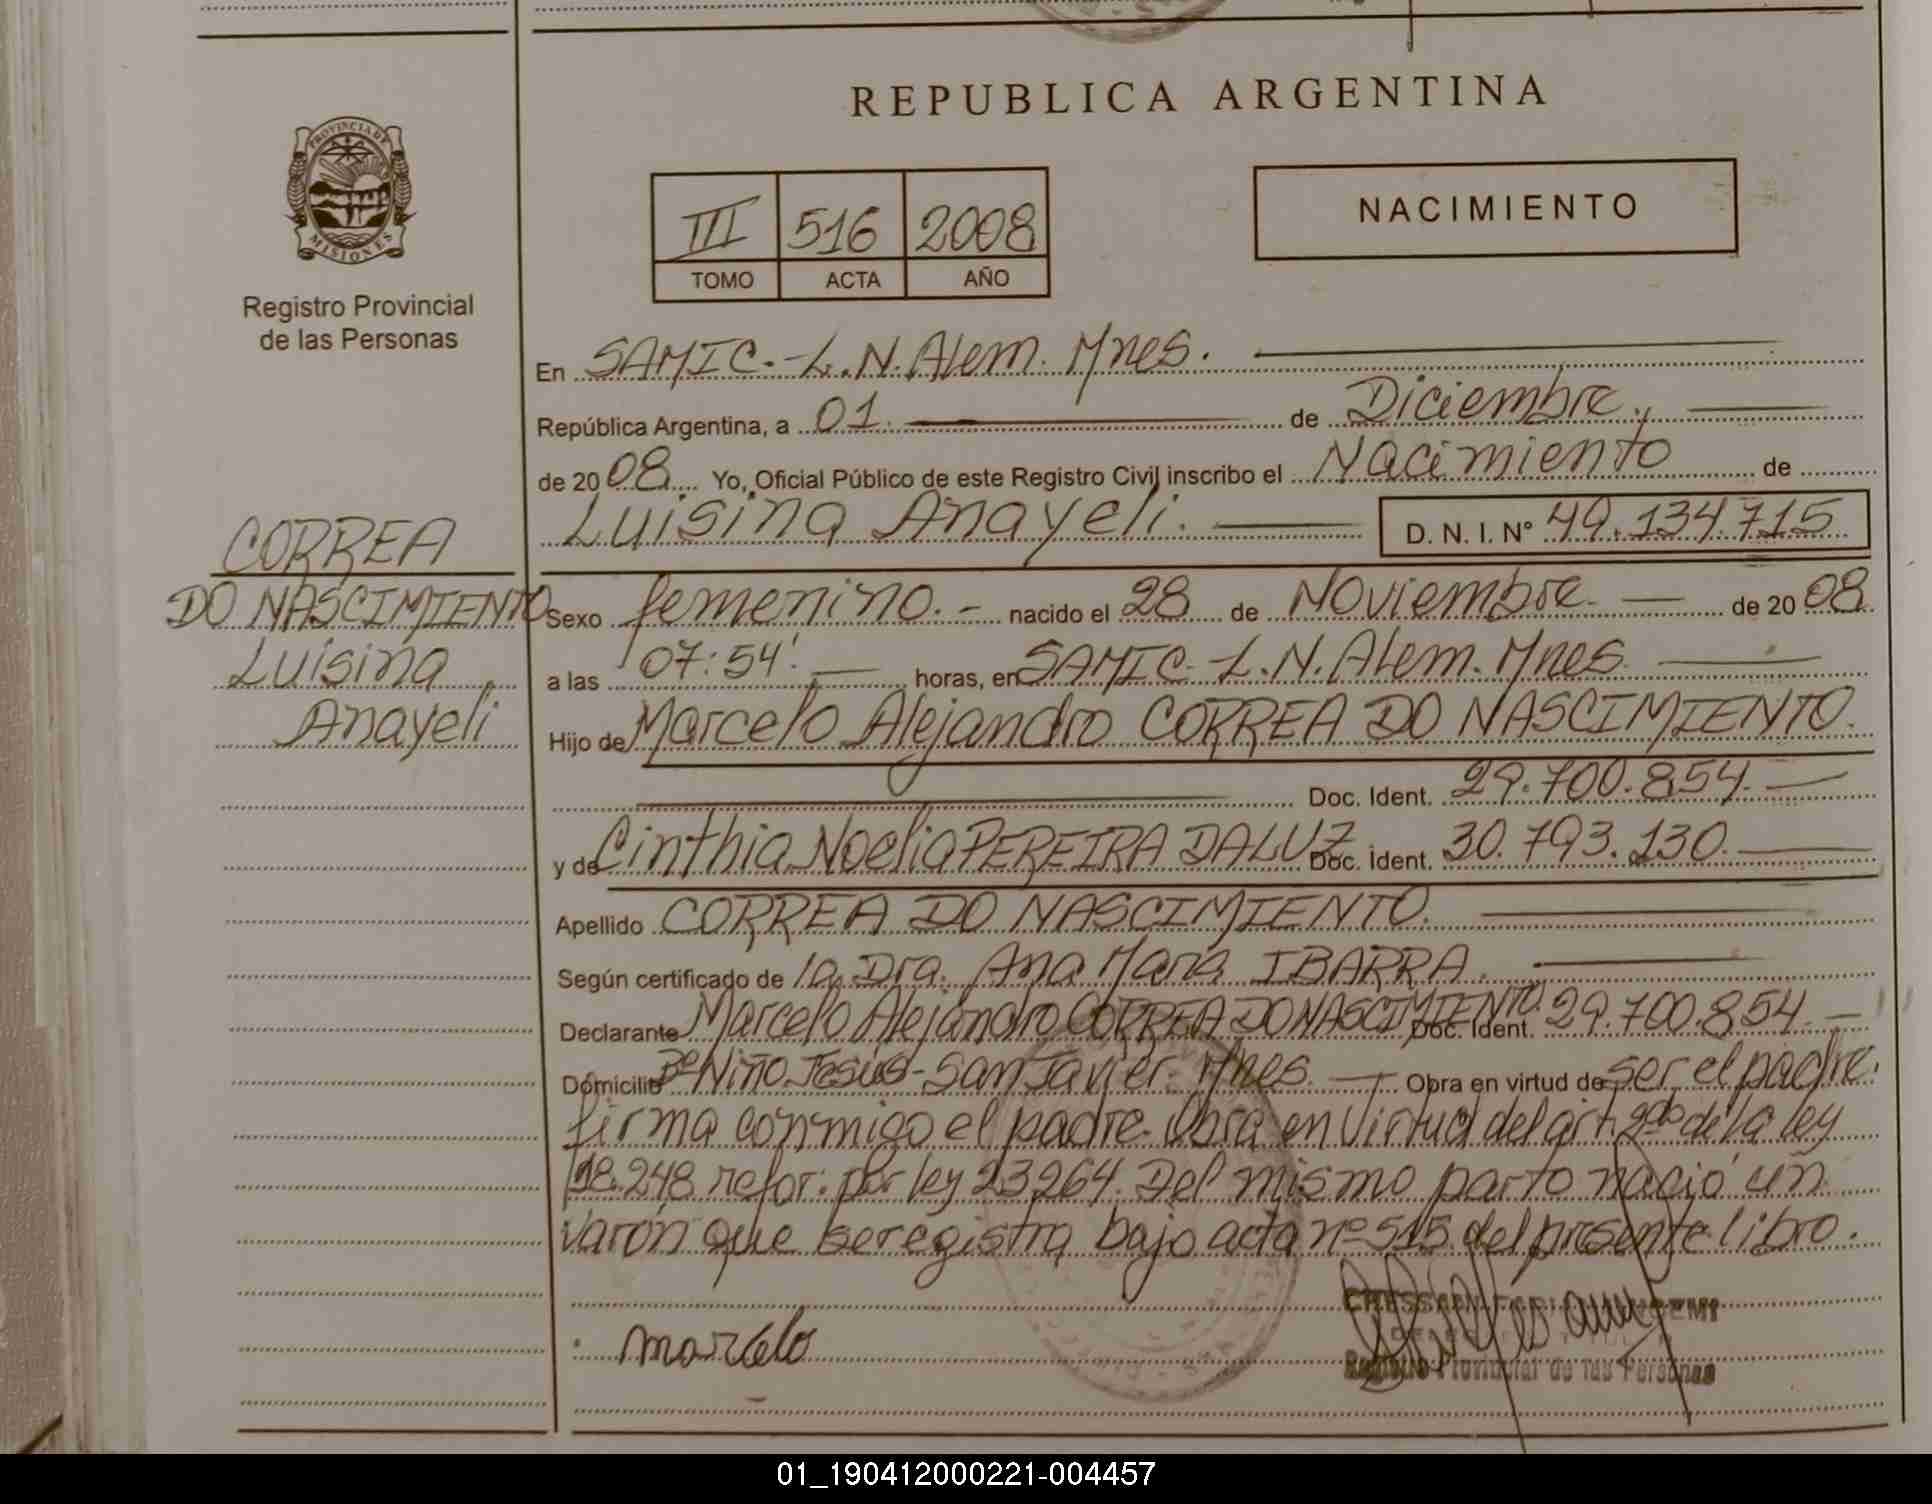 REPUBLICA ARGENTINA
PROVINCIA DE
MISIONES
Registro Provincial
de las Personas
III 516 2008
TOMO ACTA AÑO
NACIMIENTO
En SAMIC.-L.N.Alem. Mnes.
República Argentina, a 01. de Diciembre.,
de 2008. Yo, Oficial Público de este Registro Civil inscribo el Nacimiento de
Luisina Anayeli. D. N. I. Nº 49.134.715
CORREA
DO NASCIMIENTO
Luisina
Anayeli
Sexo femenino.- nacido el 28 de Noviembre. de 2008
a las 07:54'. horas, en SAMIC.-L.N.Alem. Mnes.
Hijo de Marcelo Alejandro CORREA DO NASCIMIENTO.
Doc. Ident. 29.700.854.
y de Cinthia Noelia PEREIRA DALUZ Doc. Ident. 30.793.130.
Apellido CORREA DO NASCIMIENTO.
Según certificado de la Dra. Ana Maria IBARRA.
Declarante Marcelo Alejandro CORREA DO NASCIMIENTO. Doc. Ident. 29.700.854.
Domicilio Bº Niño Jesús-San Javier. Mnes. Obra en virtud de ser el padre.
firma conmigo el padre. Obra en virtud del art. 2do de la ley
18.248 refor. por ley 23264. Del mismo parto nació un
varón que se registra bajo acta nº 515 del presente libro.
marcelo
Registro Provincial de las Personas
01_190412000221-004457